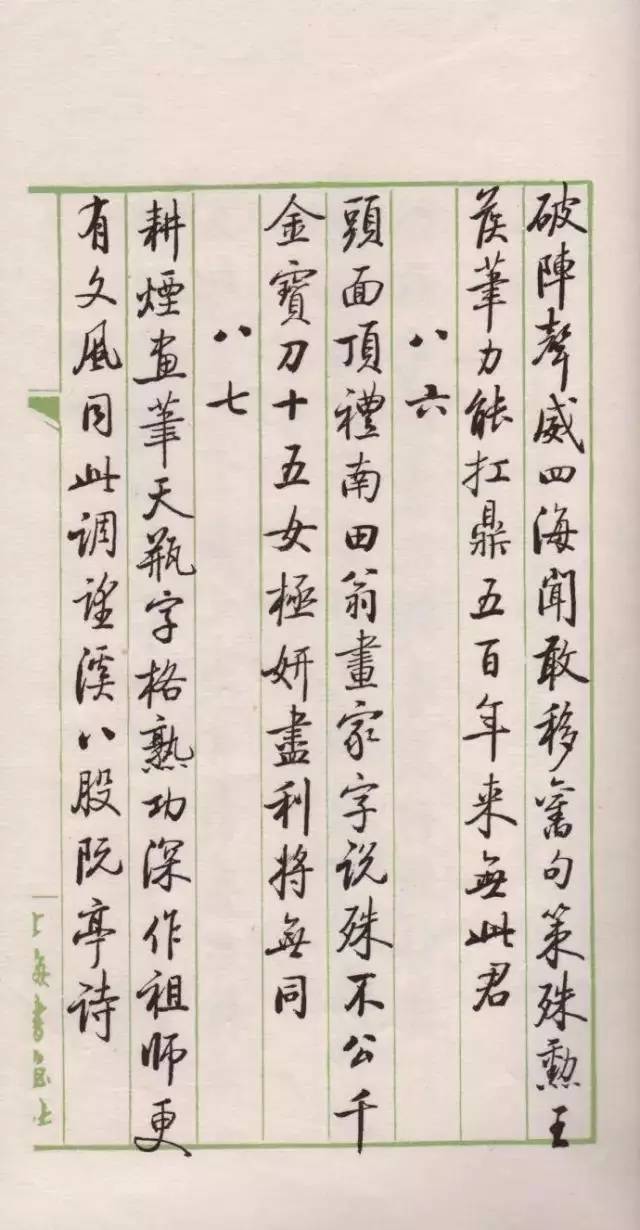 破陣聲威四海聞敢移舊句策殊勳王
侯筆力能扛鼎五百年来無此君
八六
頭面頂禮南田翁畫家字说殊不公千
金寶刀十五女極妍盡利將無同
八七
耕煙畫筆天瓶字格熟功深作祖師更
有文風同此調望溪八股阮亭诗
上海書畫社